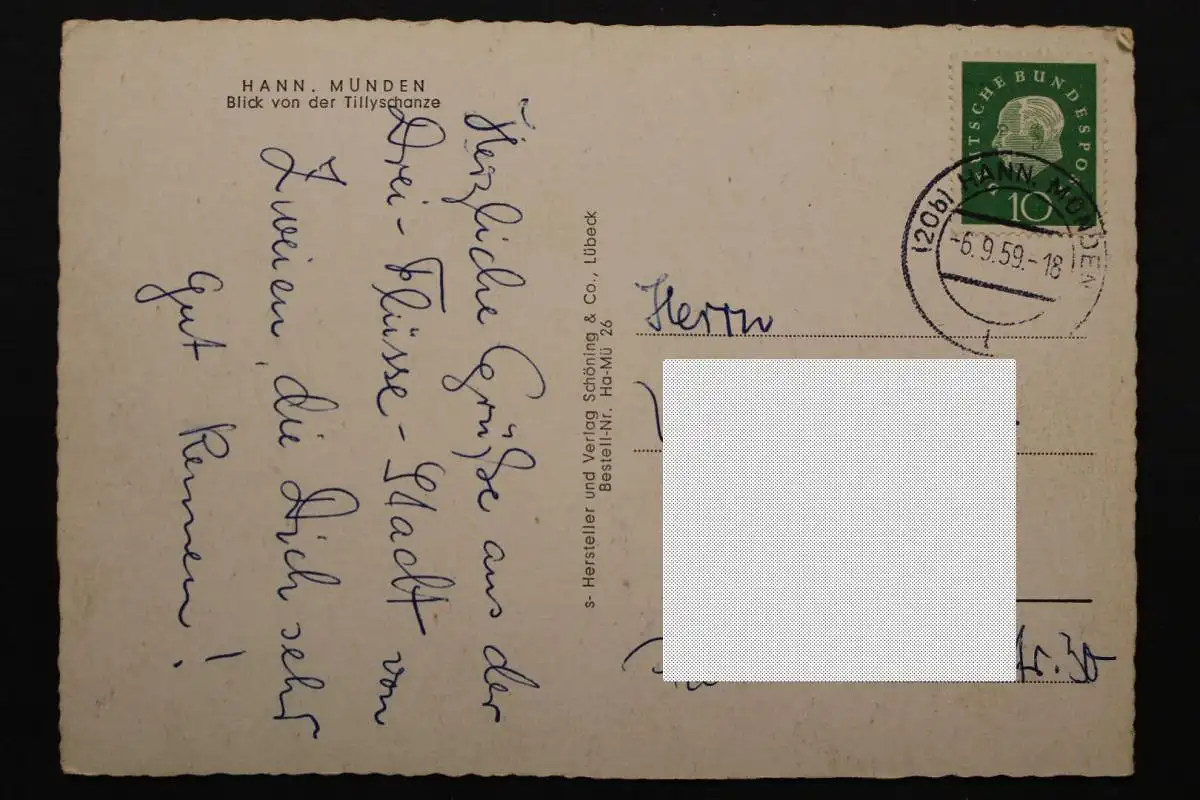 HANN. MÜNDEN
Blick von der Tillyschanze
Herzliche Grüße aus der
Drei-Flüsse-Stadt von
Zweien, die Dich sehr
gut kennen!
s- Hersteller und Verlag Schöning & Co., Lübeck
Bestell-Nr. Ha-Mü 26
DEUTSCHE BUNDESPOST
10
(20b) HANN. MÜNDEN
-6.9.59.-18
Herrn